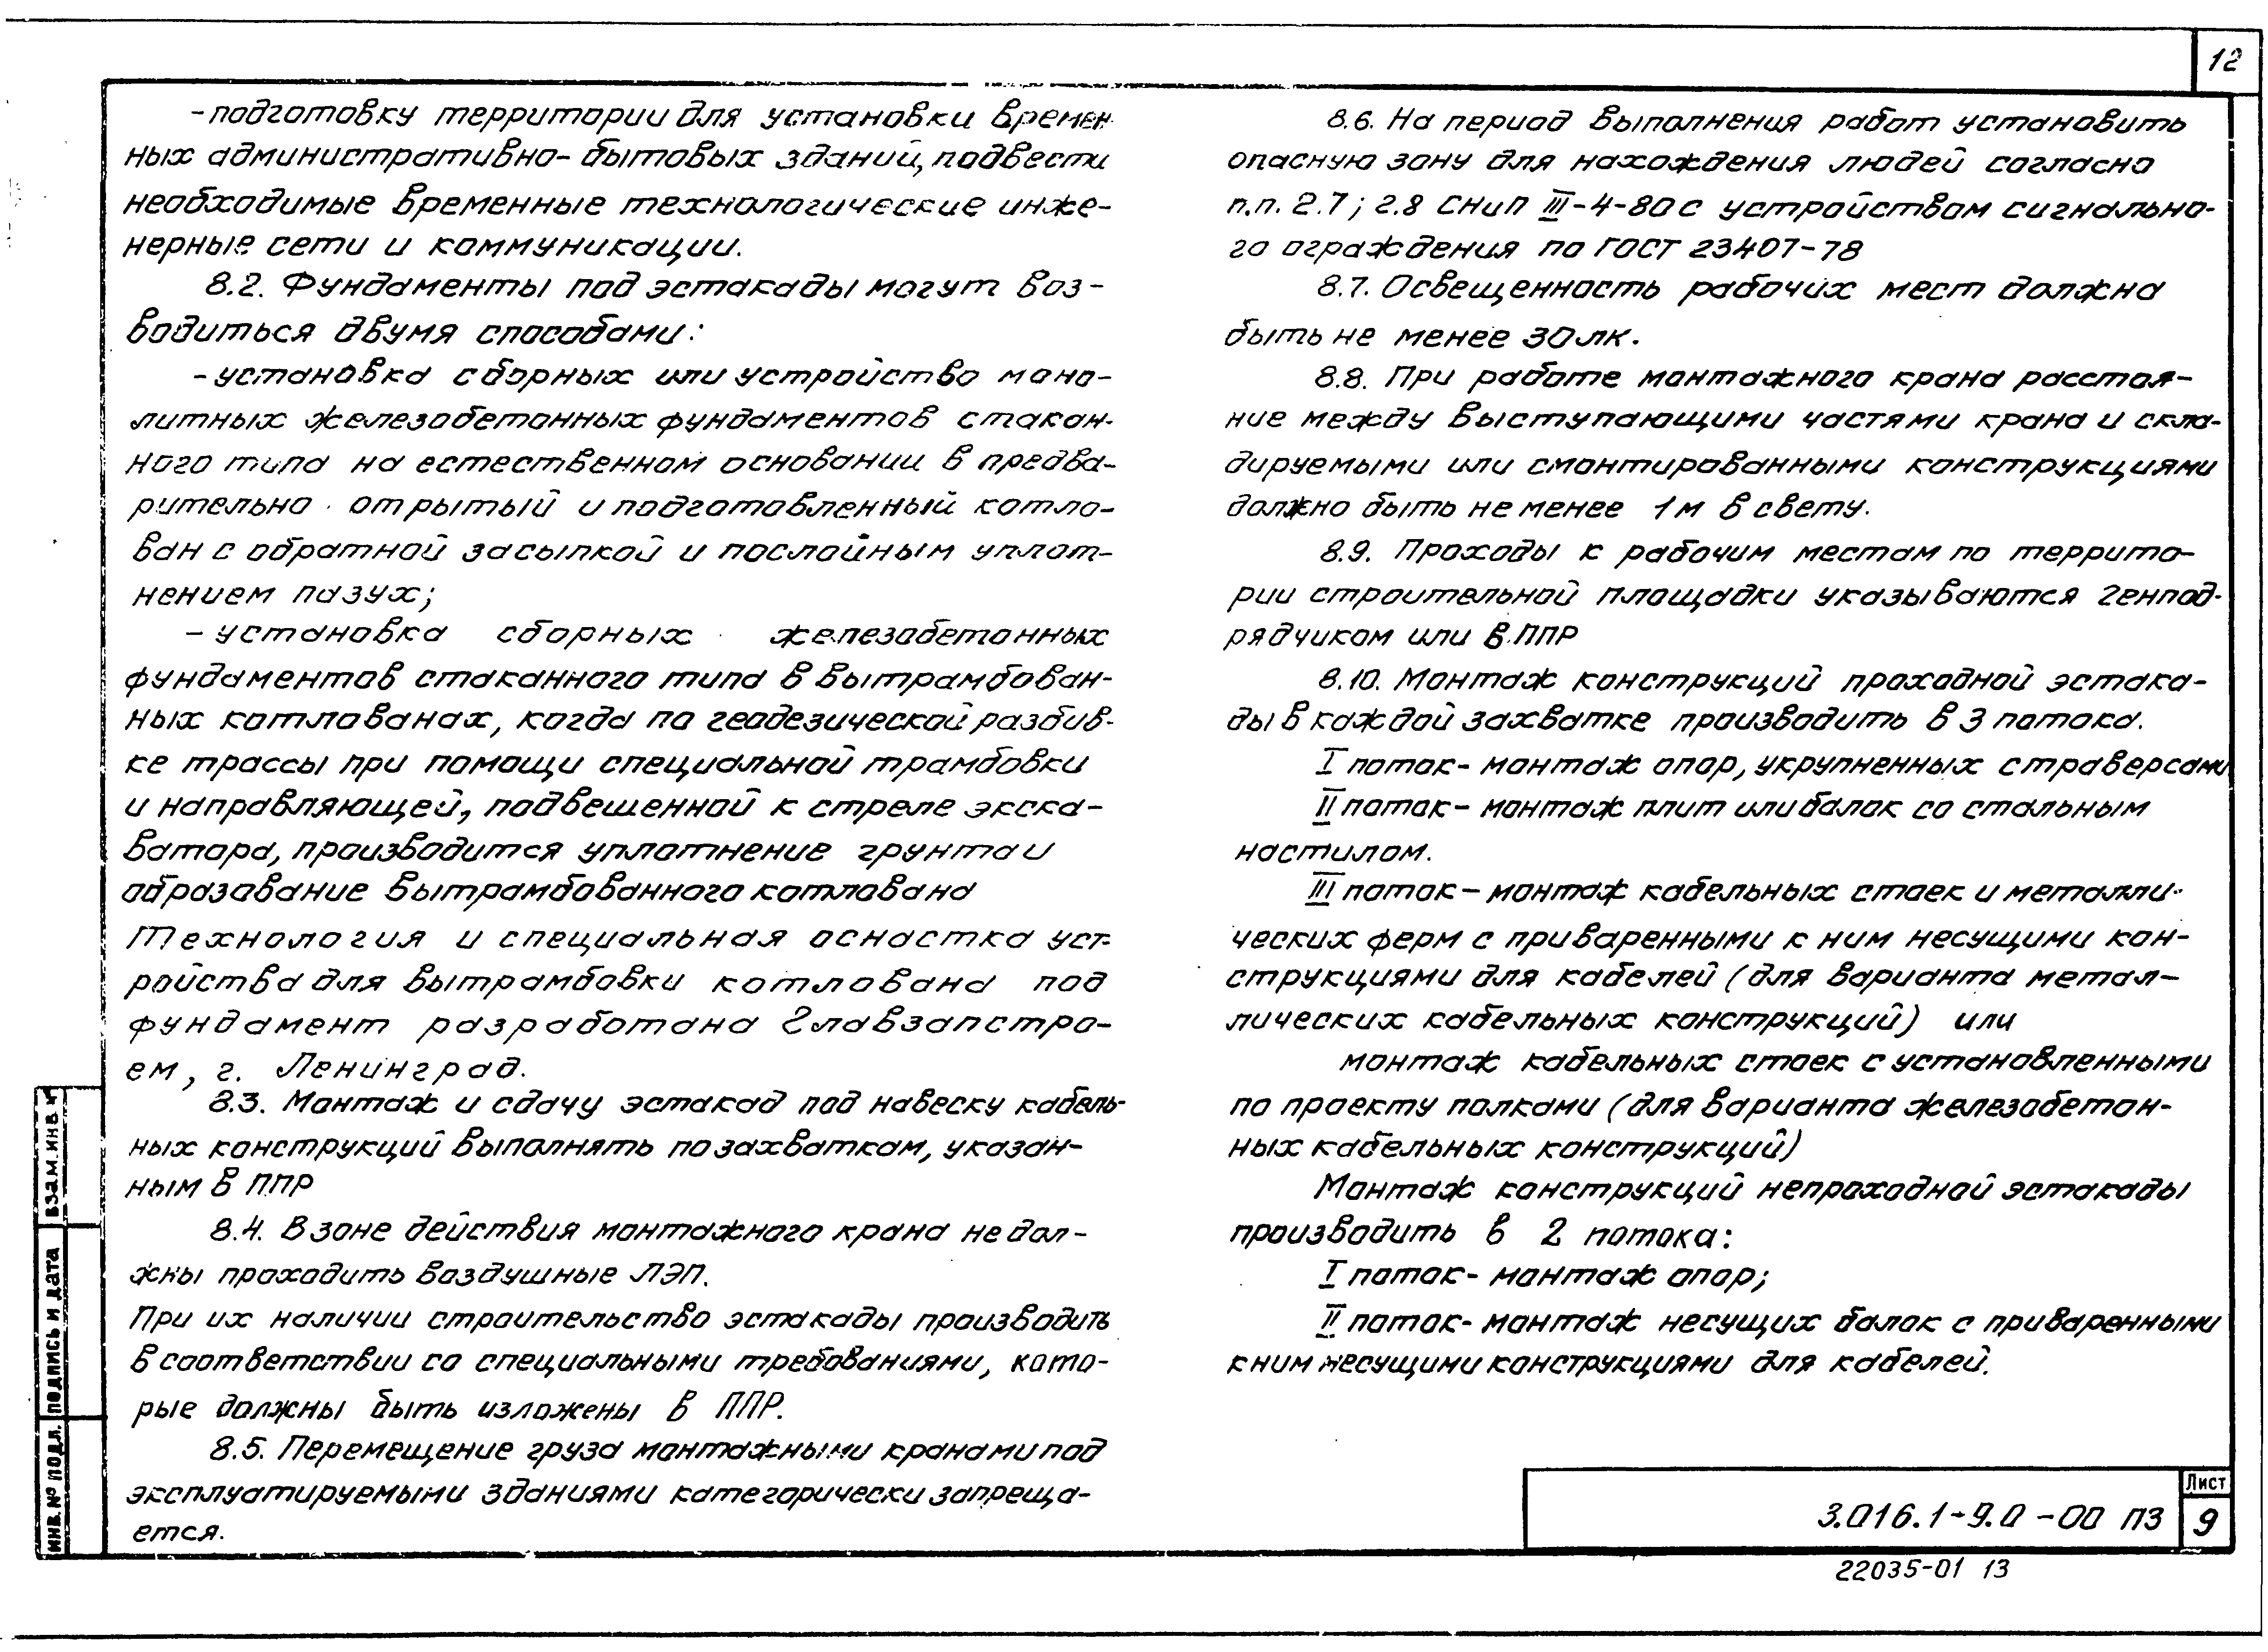 12
-подготовку территории для установки времен-
ных административно-бытовых зданий, подвести
необходимые временные технологические инже-
нерные сети и коммуникации.
8.2. Фундаменты под эстакады могут воз-
водиться двумя способами:
-установка сборных или устройство моно-
литных железобетонных фундаментов стакан-
ного типа на естественном основании в предва-
рительно отрытый и подготовленный котло-
ван с обратной засыпкой и послойным уплот-
нением пазух;
- установка сборных железобетонных
фундаментов стаканного типа в вытрамбован-
ных котлованах, когда по геодезической разбив-
ке трассы при помощи специальной трамбовки
и направляющей, подвешенной к стреле экска-
ватора, производится уплотнение грунта и
образование вытрамбованного котлована
Технология и специальная оснастка уст-
ройства для вытрамбовки котлована под
фундамент разработана Главзапстро-
ем, г. Ленинград.
8.3. Монтаж и сдачу эстакад под навеску кабель-
ных конструкций выполнять по захваткам, указан-
ным в ППР
8.4. В зоне действия монтажного крана не дол-
жны проходить воздушные ЛЭП.
При их наличии строительство эстакады производить
в соответствии со специальными требованиями, кото-
рые должны быть изложены в ППР.
8.5. Перемещение груза монтажными кранами под
эксплуатируемыми зданиями категорически запреща-
ется.
8.6. На период выполнения работ установить
опасную зону для нахождения людей согласно
п.п. 2.7; 2.8 СНиП III-4-80 с устройством сигнально-
го ограждения по ГОСТ 23407-78
8.7. Освещенность рабочих мест должна
быть не менее 30 лк.
8.8. При работе монтажного крана расстоя-
ние между выступающими частями крана и скла-
дируемыми или смонтированными конструкциями
должно быть не менее 1 м в свету.
8.9. Проходы к рабочим местам по террито-
рии строительной площадки указываются генпод-
рядчиком или в ППР
8.10. Монтаж конструкций проходной эстака-
ды в каждой захватке производить в 3 потока.
I поток- монтаж опор, укрупненных с траверсами
II поток- монтаж плит или балок со стальным
настилом.
III поток- монтаж кабельных стоек и металли-
ческих ферм с приваренными к ним несущими кон-
струкциями для кабелей (для варианта метал-
лических кабельных конструкций) или
монтаж кабельных стоек с установленными
по проекту полками (для варианта железобетон-
ных кабельных конструкций)
Монтаж конструкций непроходной эстакады
производить в 2 потока:
I поток- монтаж опор;
II поток- монтаж несущих балок с приваренными
к ним несущими конструкциями для кабелей.
ИНВ. № ПОДЛ. ПОДПИСЬ И ДАТА ВЗАМ. ИНВ. №
3.016.1-9.0-00 ПЗ
Лист
9
22035-01 13